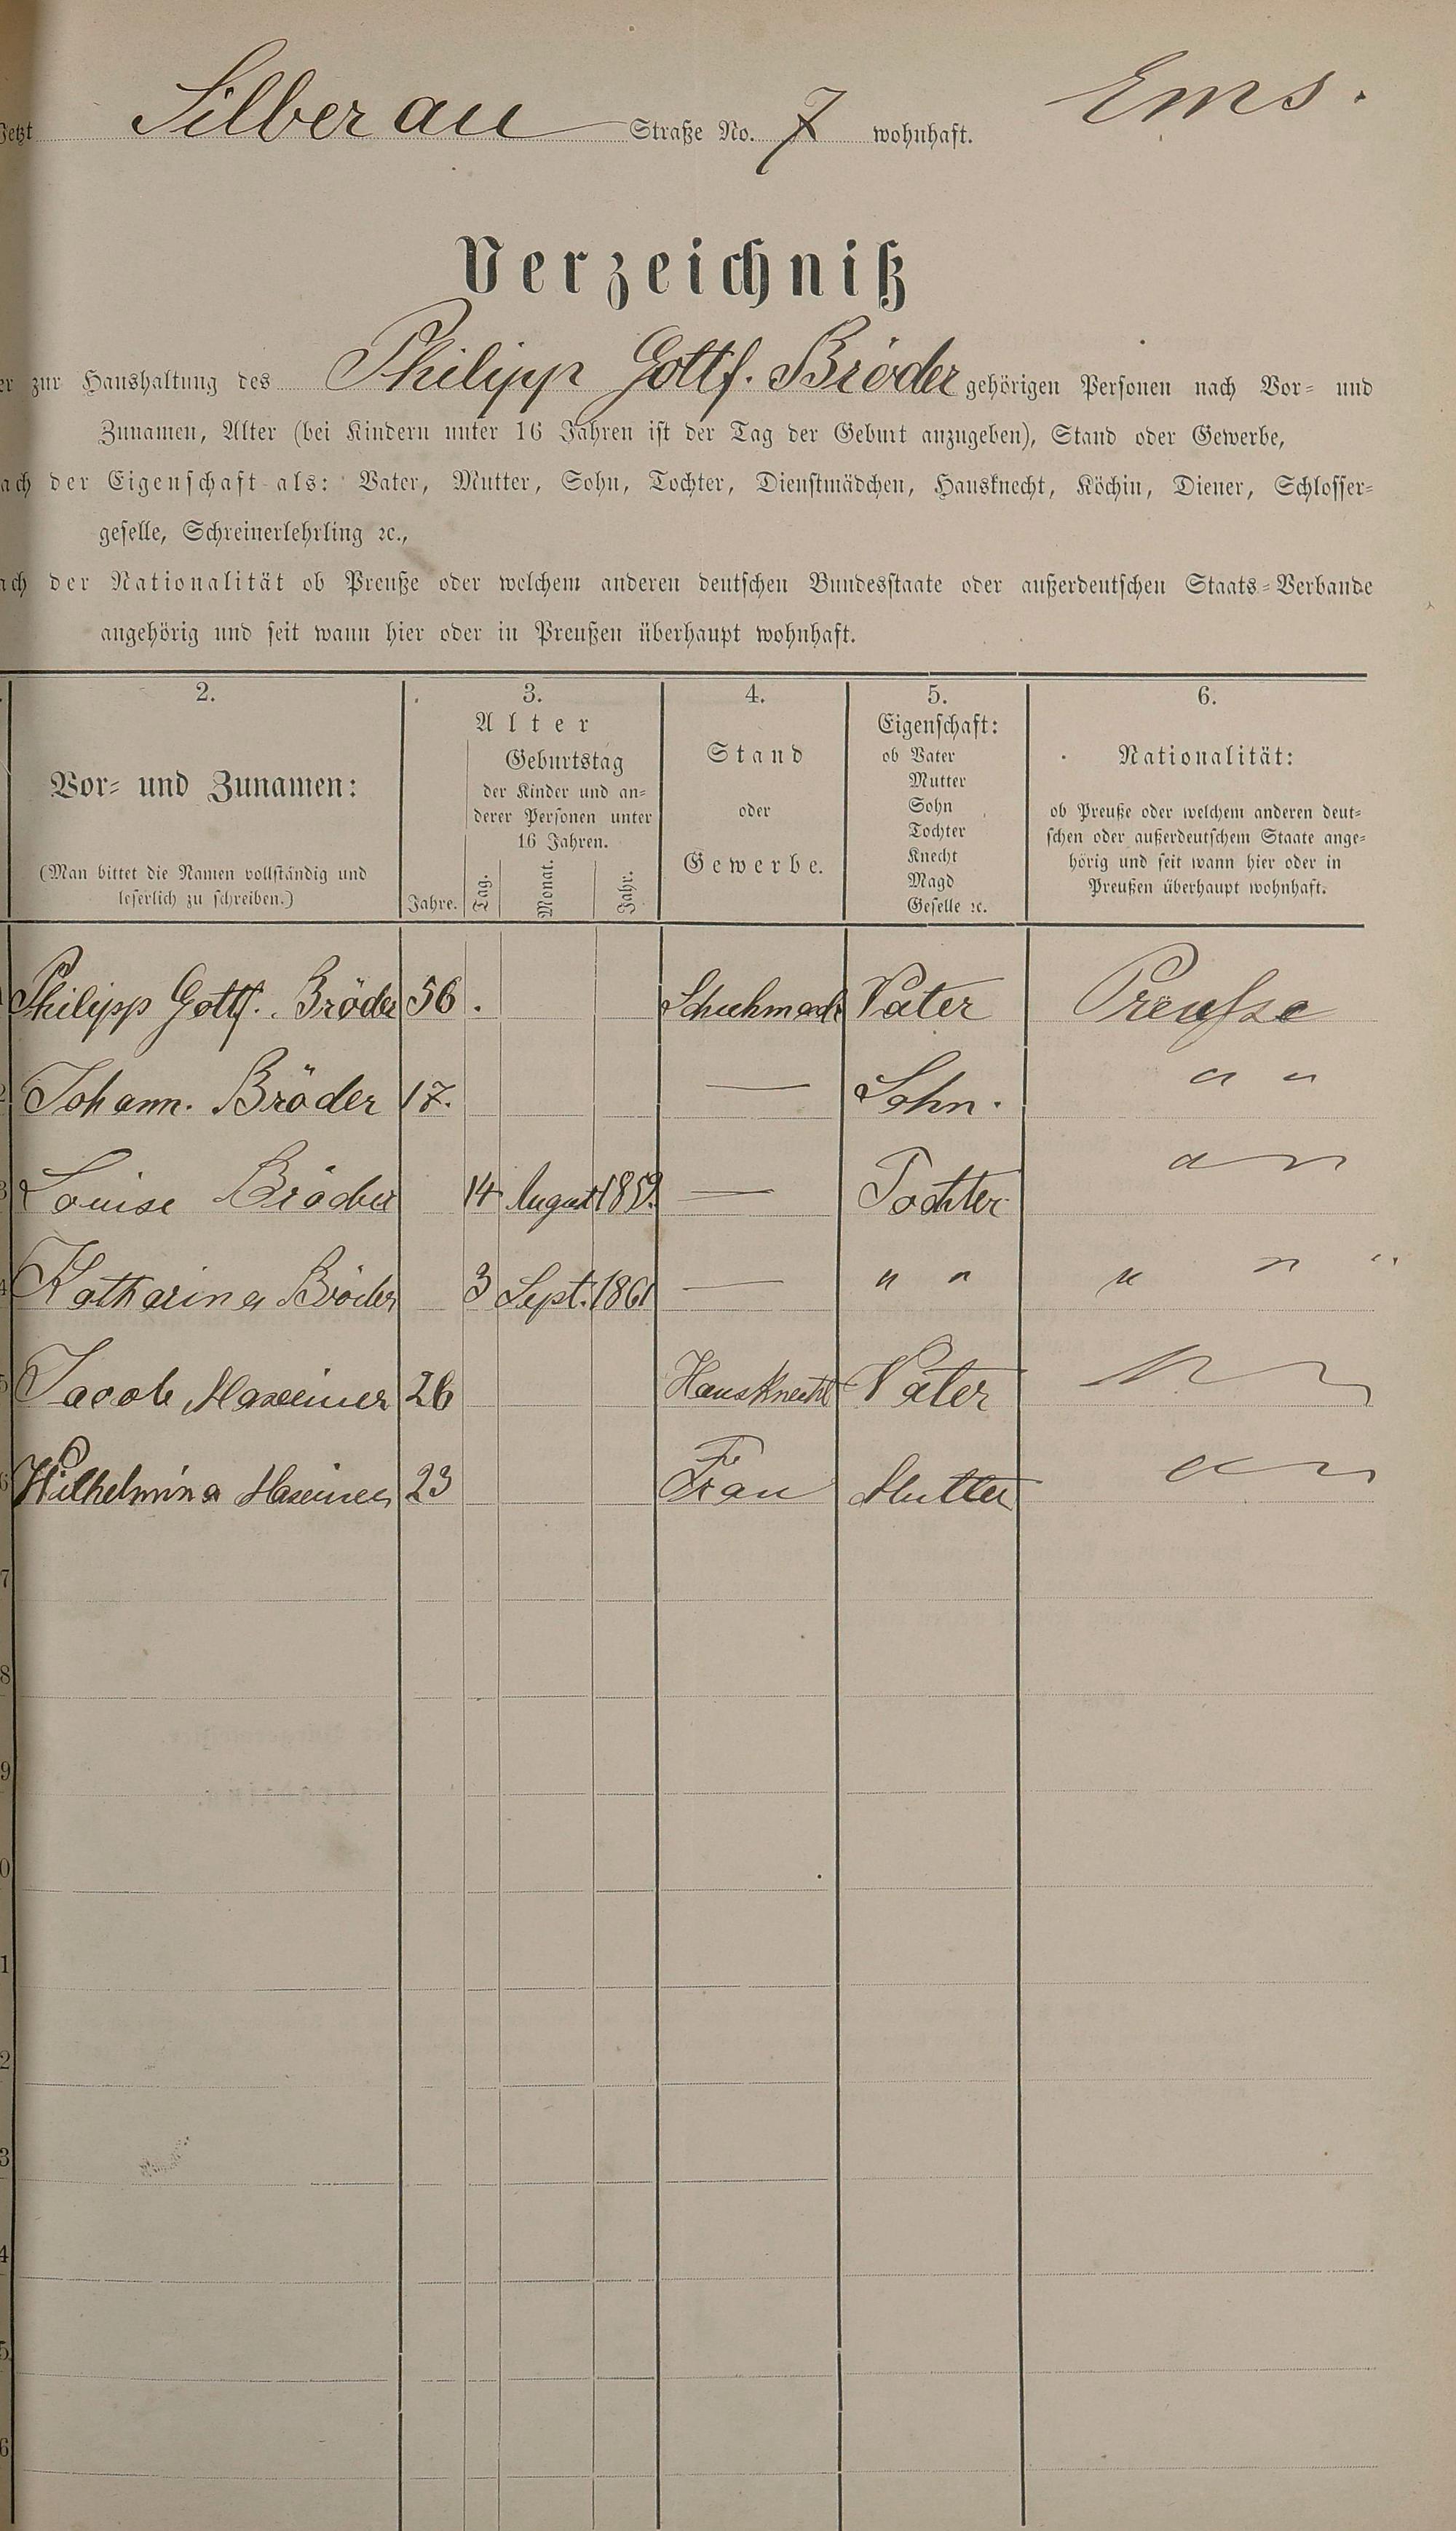 Jetzt Silberau Straße No. 7 wohnhaft. Ems.
Verzeichniß
er zur Haushaltung des Philipp Gottf. Bröder gehörigen Personen nach Vor- und
Zunamen, Alter (bei Kindern unter 16 Jahren ist der Tag der Geburt anzugeben), Stand oder Gewerbe,
ach der Eigenschaft als: Vater, Mutter, Sohn, Tochter, Dienstmädchen, Hausknecht, Köchin, Diener, Schlosser-
geselle, Schreinerlehrling ꝛc.,
ach der Nationalität ob Preuße oder welchem anderen deutschen Bundesstaate oder außerdeutschen Staats-Verbande
angehörig und seit wann hier oder in Preußen überhaupt wohnhaft.
2.
Vor- und Zunamen:
(Man bittet die Namen vollständig und
leserlich zu schreiben.)
3.
Alter
Jahre.
Geburtstag
der Kinder und an-
derer Personen unter
16 Jahren.
Tag. Monat. Jahr.
4.
Stand
oder
Gewerbe.
5.
Eigenschaft:
ob Vater
Mutter
Sohn
Tochter
Knecht
Magd
Geselle ꝛc.
6.
Nationalität:
ob Preuße oder welchem anderen deut-
schen oder außerdeutschem Staate ange-
hörig und seit wann hier oder in
Preußen überhaupt wohnhaft.
Philipp Gottf. Bröder 56. Schuhmach. Vater Preußse
2 Johann. Bröder 17. — Sohn. " "
3 Louise Bröder 14 August 1859. — Tochter " "
4 Katharina Bröder 3 Sept. 1861 — " " " " "
5 Jacob Maxeiner 26 Hausknecht Vater " "
6 Wilhelmina Maxeiner 23 Frau Mutter " "
7
8
9
0
1
2
3
4
5
6